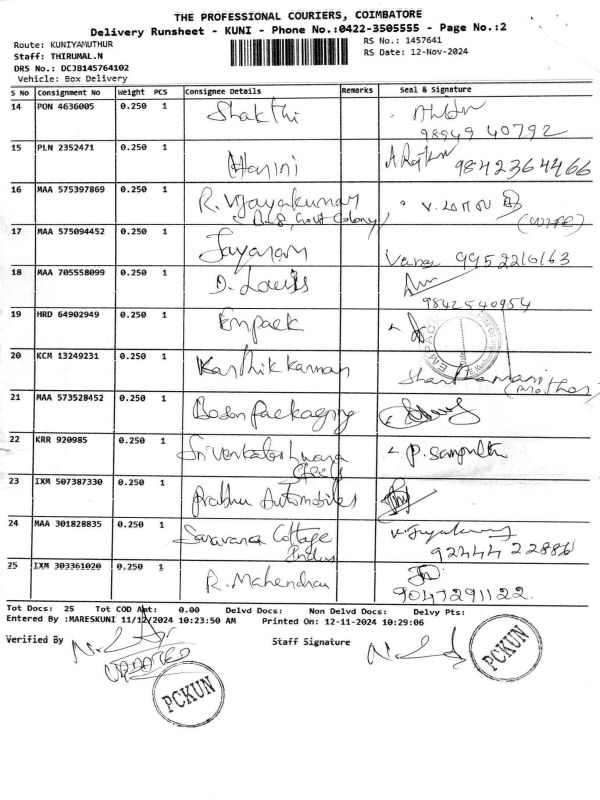 THE PROFESSIONAL COURIERS, COIMBATORE
Delivery Runsheet - KUNI - Phone No.:0422-3505555 - Page No.:2
Route: KUNIYAMUTHUR
RS No.: 1457641
Staff: THIRUMAL.N
RS Date: 12-Nov-2024
DRS No.: DCJB145764102
Vehicle: Box Delivery
S No Consignment No Weight PCS Consignee Details Remarks Seal & Signature
14 PON 4636005 0.250 1 Shakthi
98949 40792
15 PLN 2352471 0.250 1 Harini
9842364466
16 MAA 575397869 0.250 1 R. Vijayakumar
Govt Colony
17 MAA 575094452 0.250 1 Jayaram
18 MAA 705558099 0.250 1 D. Louis
9842540954
19 HRD 64902949 0.250 1 Empack
20 KCM 13249231 0.250 1 Karthik kannan
(Mother)
21 MAA 573528452 0.250 1 Boson Packaging
22 KRR 920985 0.250 1 Sri Venkateshwara
23 IXM 507387330 0.250 1 Prabhu Automobiles
24 MAA 301828835 0.250 1 Saravana Cottage
Indus
92444 22886
25 IXM 303361020 0.250 1 R. Mahendran
9047291122.
Tot Docs: 25 Tot COD Amt: 0.00 Delvd Docs: Non Delvd Docs: Delvy Pts:
Entered By :MARESKUNI 11/12/2024 10:23:50 AM Printed On: 12-11-2024 10:29:06
Verified By Staff Signature
UPDATED
PCKUN
PCKUN